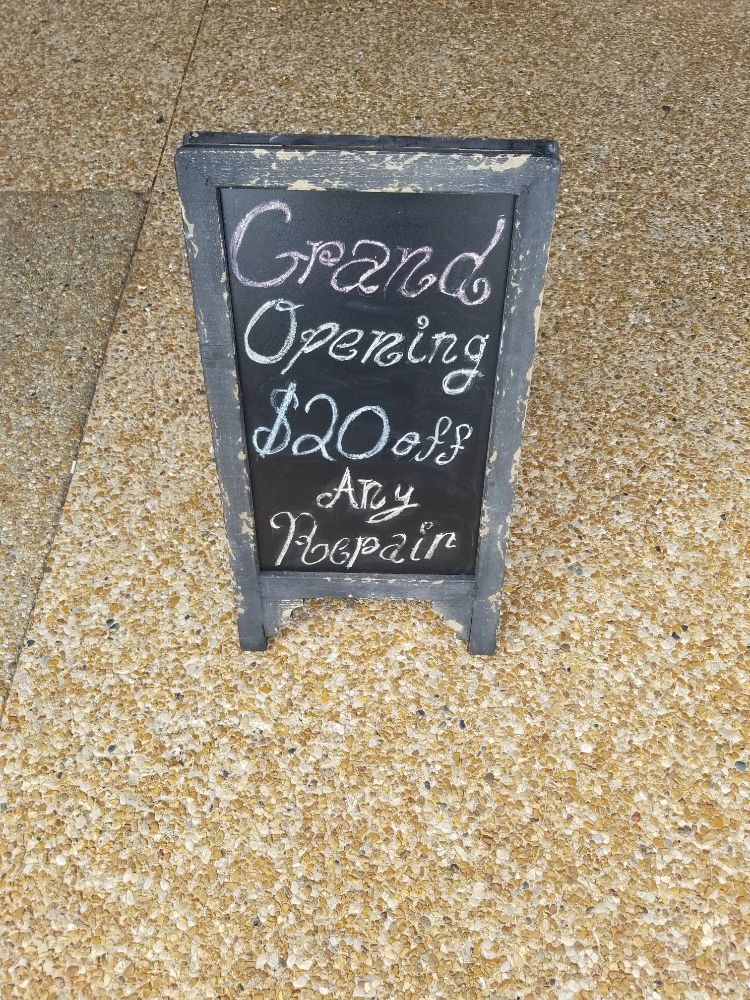 Grand
Opening
$20 off
Any
Repair